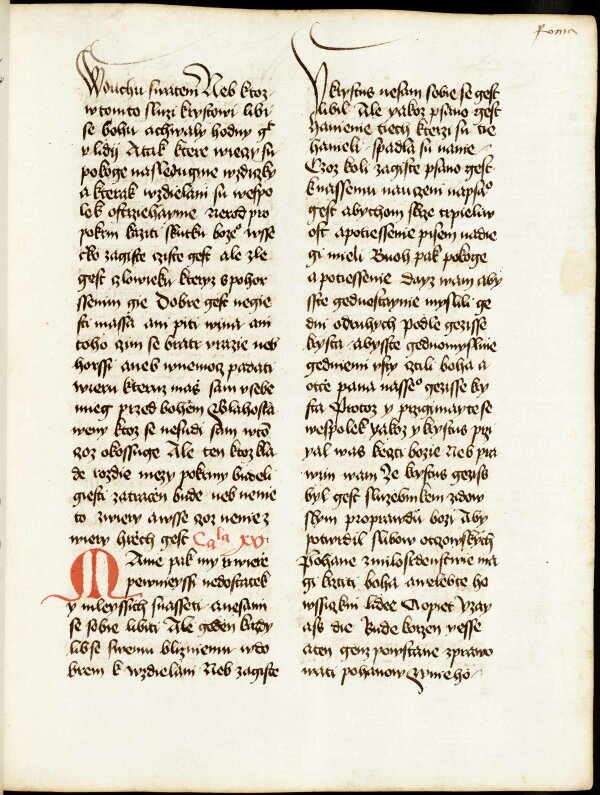 Roma
Duchu swatem Neb ktoz
w tomto sluzi krystowi libi
se bohu achwaly hodny gt
v lidij Atak ktere wiezy su
pokoge nasledugme wzdyczky
a kterak wzdielani su wespo
lek ostrziehayme Nerod pro
pokrm kaziti skutku boze⁹ wsse
czko zagiste cziste gest ale zle
gest czlowieku kteryz s pohor
ssenim gie Dobre gest negie
sti massa ani piti wina ani
toho czim se bratr vrazie neb
horssi aneb wnemoz padati
wieru kteruz mas sam v sebe
mieg przed bohem Blahosla
weny ktoz se nesudi sam w to
czoz okossuge Ale ten ktoz kla
de rozdie mezy pokrmy budeli
giesti zatracen bude neb nenie
to zwiery a wsse czoz nenie z
wiery hrziech gest Cala XV
Mame pak my twrdie
pewnieyssi nedostatek
y mleyssich snasseti anesami
se sobie libiti Ale geden kazdy
libse swemu blizniemu w do
brem k wzdielani Neb zagiste
krystus nesam sobie se gest
libil Ale yakoz psano gest
hanienie tiech kterzi su tie
haneli spadla su namie
Czoz koli zagiste psano gest
k nassemu nauczeni napsa⁹
gest abychom skrze trpieliw
ost a potiessenie pisem nadie
gi mieli Buoh pak pokoge
a potiessenie dayz wam aby
sste gednostaynie myslili ge
dni o druhych podle gezisse
krysta abysste gednomyslnie
gedniemi vsty cztili boha a
otcze pana nasse⁹ gezisse kry
sta Protoz y przigimayte se
wespolek yakoz y krystus przi
yal was kezti bozie Neb pra
wim wam Ze krystus gezis
byl gest sluzebnikem zidow
skym proprawdu bozi Aby
potwrdil slibow otczowskych
Pohane zmilosrdenstwie ma
gi cztiti boha a welebte ho
wssiczkni lidee A opiet Yzay
ass die Bude korzen yesse
a ten genz powstane zprawo
wati pohanow w nieho